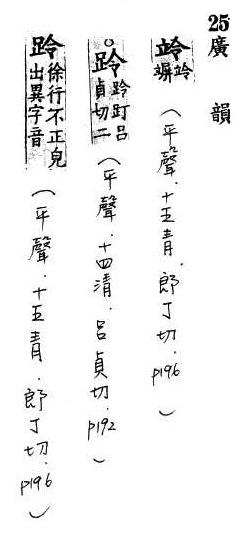 25廣韻
竛竛竮（平聲．十五青．郎丁切．p196）
。跉跉䟓呂貞切二（平聲．十四清．呂貞切．p192）
跉徐行不正皃出異字音（平聲．十五青．郎丁切．p196）